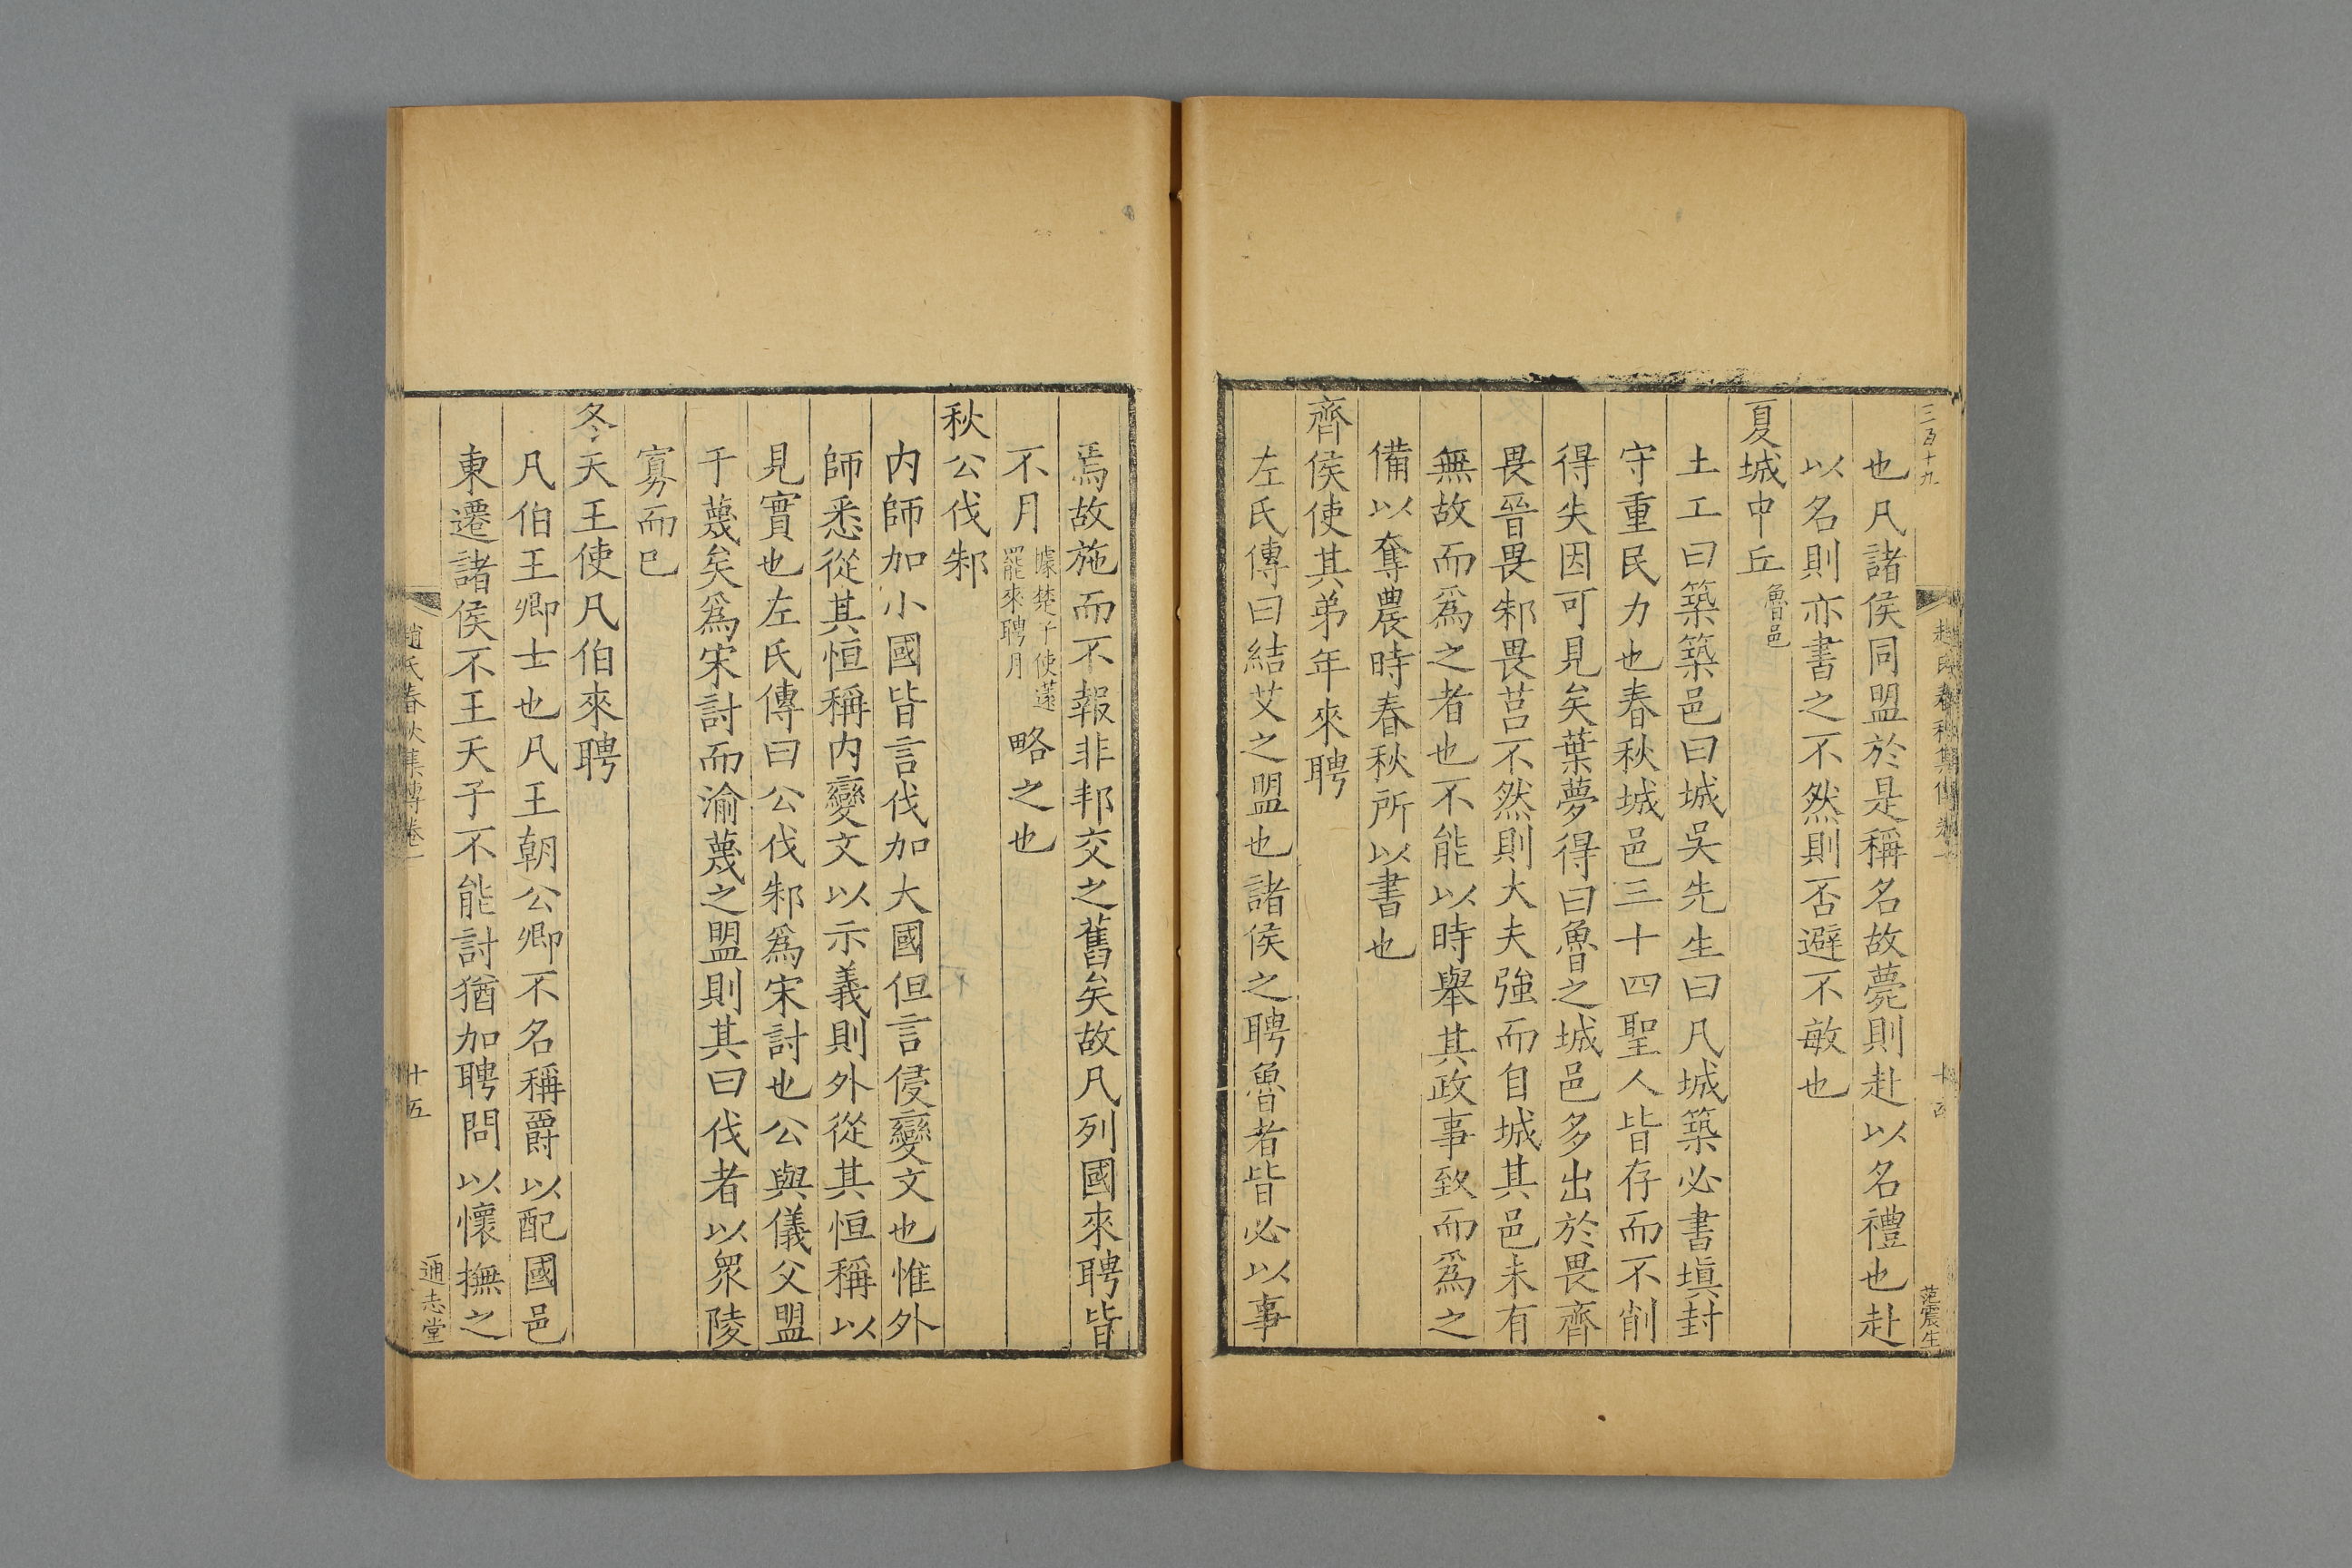 三百十九
趙氏春秋集傳卷一
十四
范震生
也凡諸侯同盟於是稱名故薨則赴以名禮也赴
以名則亦書之不然則否避不敏也
夏城中丘魯邑
土工曰築築邑曰城吳先生曰凡城築必書塡封
守重民力也春秋城邑三十四聖人皆存而不削
得失因可見矣葉夢得曰魯之城邑多出於畏齊
畏晉畏邾畏莒不然則大夫強而自城其邑未有
無故而爲之者也不能以時舉其政事致而爲之
備以奪農時春秋所以書也
齊侯使其弟年來聘
左氏傳曰結艾之盟也諸侯之聘魯者皆必以事
焉故施而不報非邦交之舊矣故凡列國來聘皆
不月據楚子使薳罷來聘月略之也
秋公伐邾
内師加小國皆言伐加大國但言侵變文也惟外
師悉從其恒稱内變文以示義則外從其恒稱以
見實也左氏傳曰公伐邾爲宋討也公與儀父盟
于蔑矣爲宋討而渝蔑之盟則其曰伐者以衆陵
寡而巳
冬天王使凡伯來聘
凡伯王卿士也凡王朝公卿不名稱爵以配國邑
東遷諸侯不王天子不能討猶加聘問以懷撫之
趙氏春秋集傳卷一
十五
通志堂